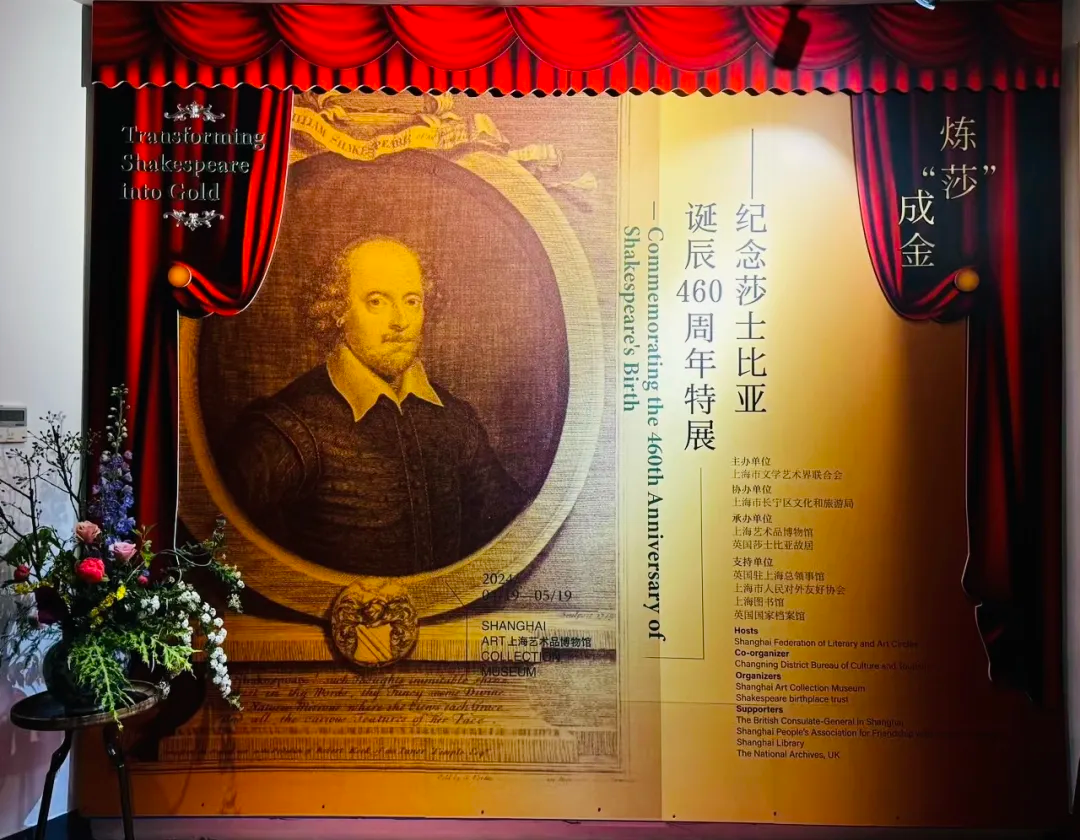 Transforming
Shakespeare
into Gold
炼
“莎”
成
金
WILLIAM SHAKESPEARE
——纪念莎士比亚
诞辰460周年特展
—Commemorating the 460th Anniversary of
Shakespeare's Birth
2024
—05/19
SHANGHAI
ART 上海艺术品博物馆
COLLECTION
MUSEUM
主办单位
上海市文学艺术界联合会
协办单位
上海市长宁区文化和旅游局
承办单位
上海艺术品博物馆
英国莎士比亚故居
支持单位
英国驻上海总领事馆
上海市人民对外友好协会
上海图书馆
英国国家档案馆
Hosts
Shanghai Federation of Literary and Art Circles
Co-organizer
Changning District Bureau of Culture and
Organizers
Shanghai Art Collection Museum
Shakespeare birthplace trust
Supporters
The British Consulate-General in Shanghai
Shanghai People's Association for Friendship
Shanghai Library
The National Archives, UK
such thoughts inimitable shine
in thy Words, thy Fancy seems Divine
Mirrour where she Views each Grace
and all the various Features of her Face.